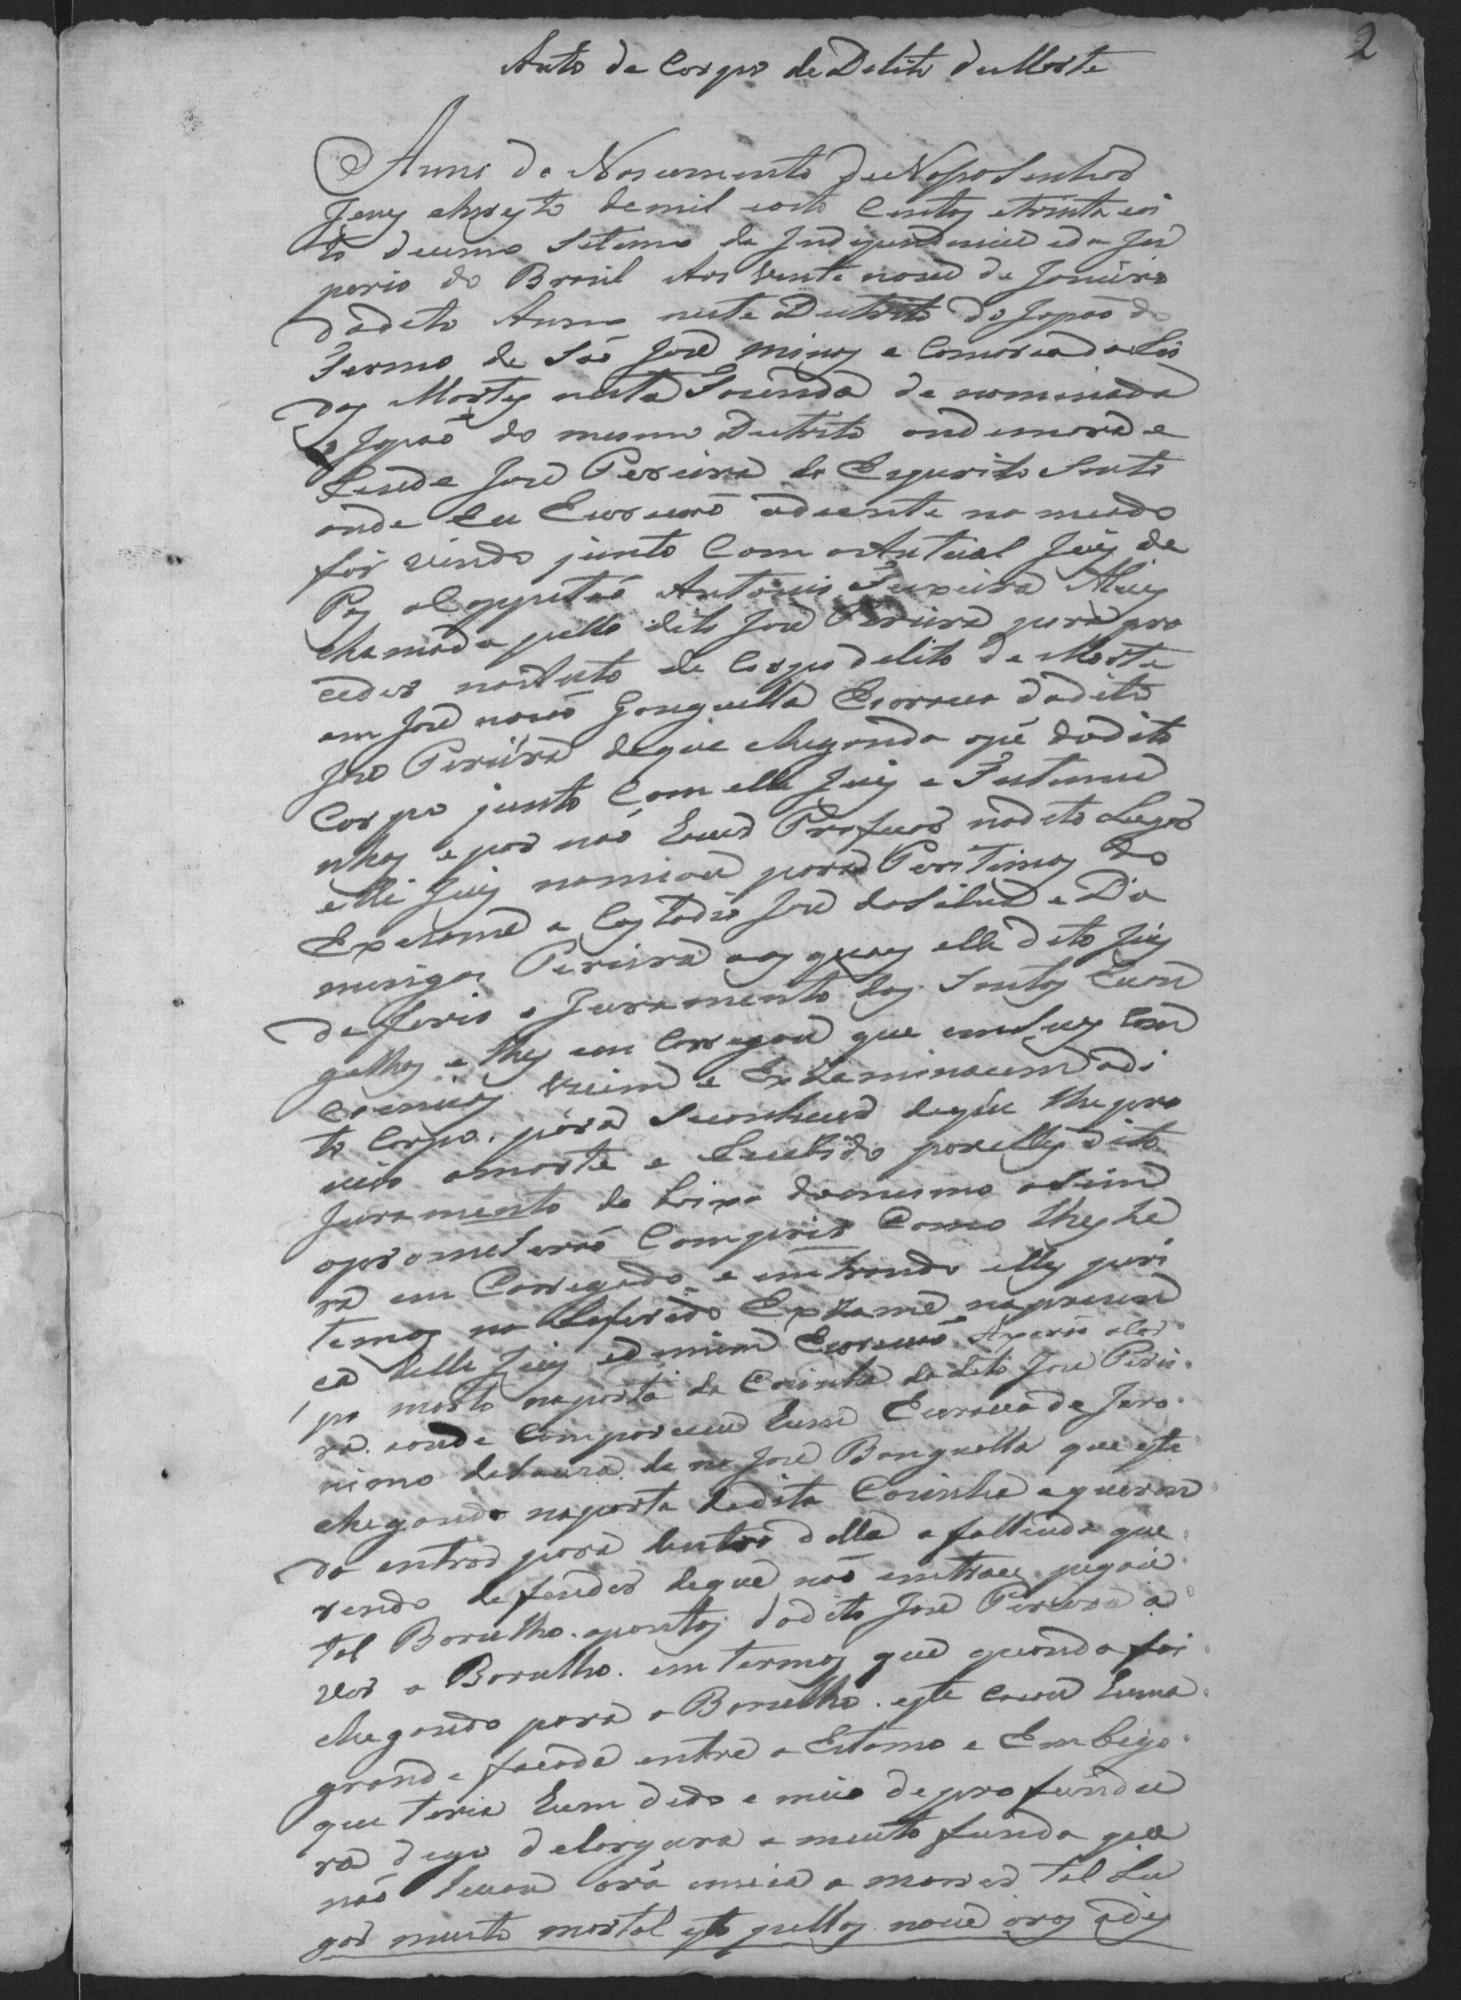 2
Auto de Corpo de Delito de Morte
Anno do Nascimento de Nosso Senhor
Jezuz Chrysto de mil oito Centoz e trinta e oi
to decimo Setimo da Independencia e do Im
perio do Brasil Aos vinte nove de Janeiro
do dito Anno neste Destrito do Japão do
Termo de São José Minas e Comarca do Rio
das Mortes nesta Fazenda de nominada
o Japão do mesmo Destrito onde mora e
Reside José Pereira do Espirito Santo
onde Eu Escrivão adiente no meado
foi vindo junto Com o Autual Juiz de
Paz o Cappitão Antonio Teixeira
chamado pello dito José Pereira para pro
ceder no Auto de Corpo delito de Morte
em José nação Ganguella Escravo do dito
José Pereira de que chegando o pé do dito
Corpo junto Com elle Juiz e Testemu
nhas e por não Haver Profesor no dito Lugar
elle Juiz nomiou para Peritimos do
Exzame a Costodio José da Silva e Do
mingos Pereira aos quaes elle dito Juiz
deferio o Juramento dos Santos Evan
gelhos e lhes em Carregou que em suas Com
ciencias vicem e Exzaminacem o di
to Corpo para Seconhecer de que lhe pro
veio a morte e Recebido por elles dito
Juramento de baixo do mesmo asim
o prometerão Comprir Como lhes he
ra em Carregado e em trando elles peri
temos no Referido Exzame na prezen
ca delle Juiz e de mim Escrivão Axarão o Cor
po morto na porta da Cozinha do dito José Perei
ra aonde Compareceu Hum Escravo de Jero
nimo de Souza de no José Banguella que este
chegando na porta da dita Cozinha e queren
do entrar para dentro della o fallecido que
rendo defender de que não emtrace pegou
tal Barulho apontos do dito José Pereira a
ver o Barulho em termos que quando foi
chegando para o Barulho este Cravou Huma
grande facada entre o Estamo e Embigo
que teria Hum dedo e meio de profundu
ra digo de largura e muito funda que
não Levou ora e meia a morrer tal Lu
gar muito mortal esto pellas nove oras e dis